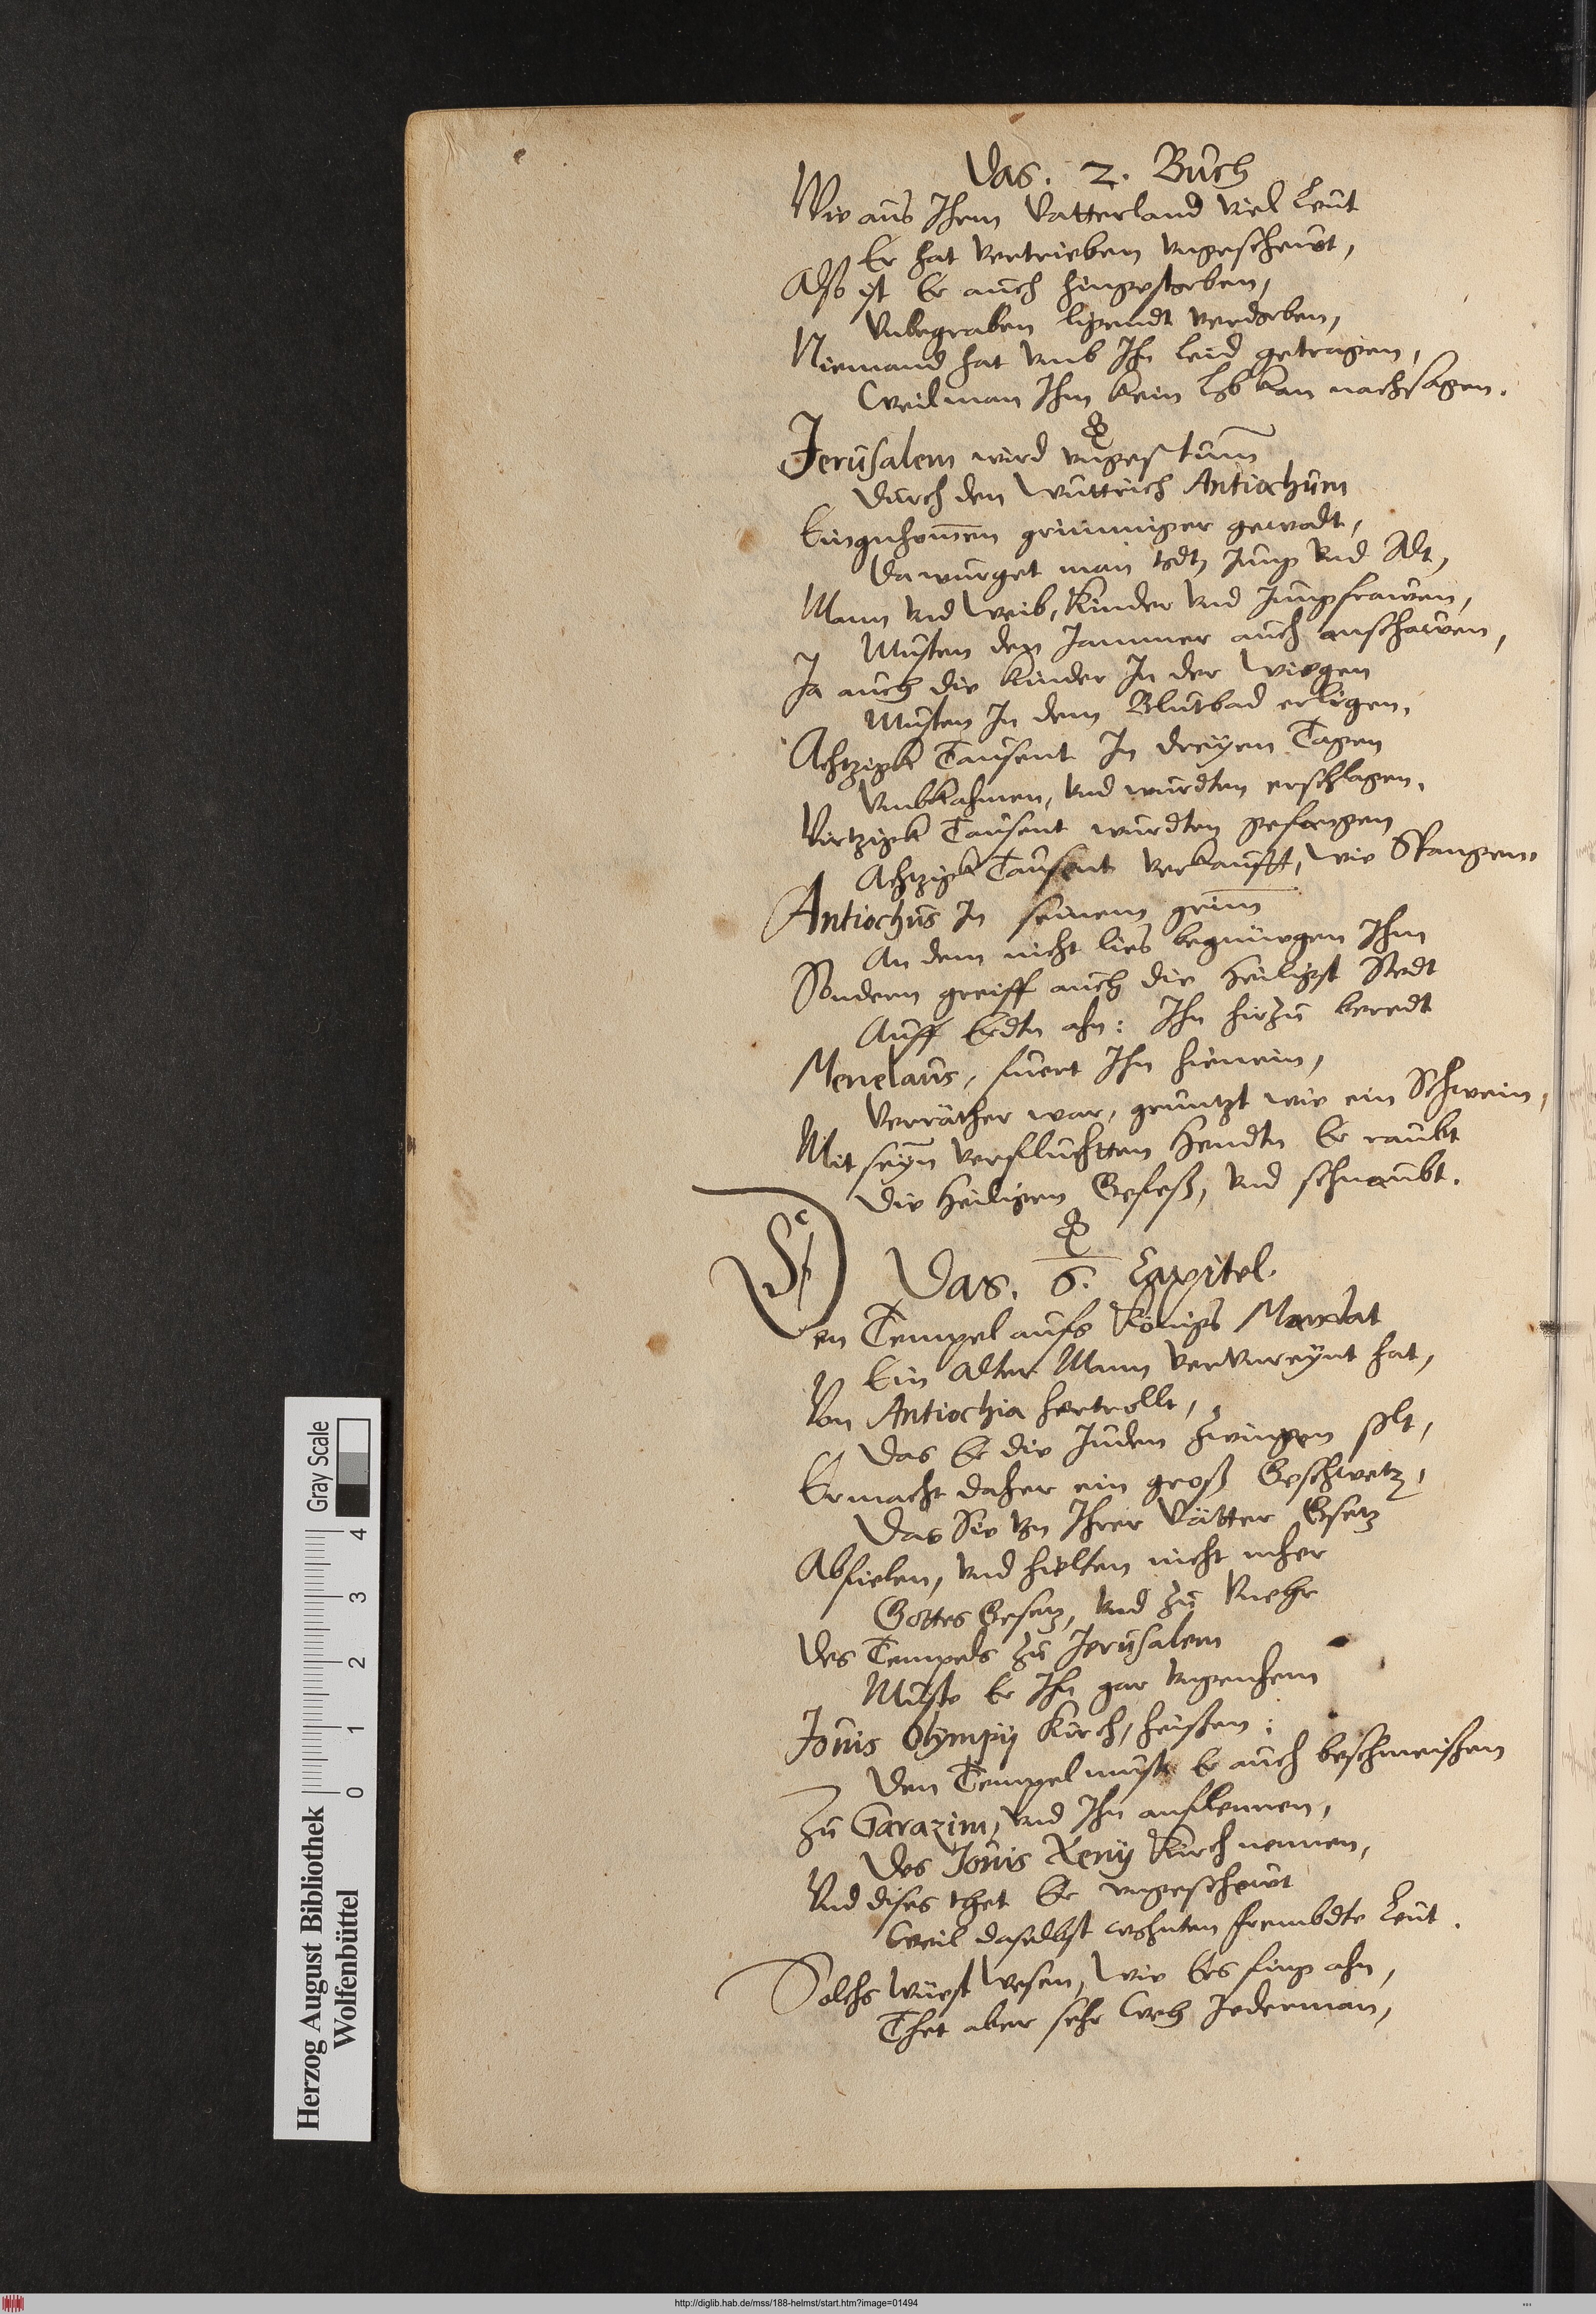 Das. 2. Buch
Wie aus Ihrem Vatterland viel Leut
Er hat vertrieben vngescheut,
Also ist Er auch hingestorben,
Vnbegraben ligendt verdorben,
Niemand hat vmb Ihn leid getragen,
Weil man Ihm kein Lob kan nachsagen.
Jerusalem wird vngestum̄
Durch den Wuttrich Antiochum
Eingnhom̄en grimmiger gewalt,
Da wurget man todt Jung vnd Alt,
Mann vnd Weib, Kinder vnd Jungfrawen,
Musten den Jammer auch anschawen,
Ja auch die Kinder In der Wiegen
Musten In dem Blutbad erligen.
Achtzigk Tausent In dreyen Tagen
Vmbkahmen, vnd wurdten erschlagen.
Virtzigk Tausent wurdten gefangen
Achtzigk Tausent verkaufft, wie Spangen.
Antiochus In seinem grim̄
An dem nicht lies begnuegen Ihm
Sondern greiff auch die heiligst Stedt
Auff Erdtn ahn: Ihn hirzu beredt
Menelaus, fuert Ihn hienein,
Verräther war, gruntzt wie ein Schwein,
Mit seyn̄ verfluchtten Hendtn Er raubt
Die heiligen Gefeß, vnd schnaubt.
Das. 6. Capitel.
Den Tempel aufs Königs Mandat
Ein alter Mann vervnreynt hat,
Von Antiochia hertrollt,
Das Er die Juden zwingen solt,
Er macht daher ein groß Geschwetz,
Das Sie von Ihrer Vätter Gsetz
Abfielen, vnd hielten nicht meher
Gottes Gesetz, vnd zu Vnehr
Des Tempels zu Jerusalem
Muste Er Ihn gar vngenhem
Jouis Olympij Kirch, heißen:
Den Tempel must Er auch beschmeißen
Zu Garazim, vnd Ihn
Des Jouis Xenij Kirch nennen,
Vnd dises thet Er vngescheut
Weil daselbst wohnten frembdte Leut.
Solchs Wüest Wesen, wie Ers fing ahn,
Thet aber sehr Weh Jederman,
Herzog August Bibliothek
Wolfenbüttel
Gray Scale
0 1 2 3 4
http://diglib.hab.de/mss/188-helmst/start.htm?image=01494